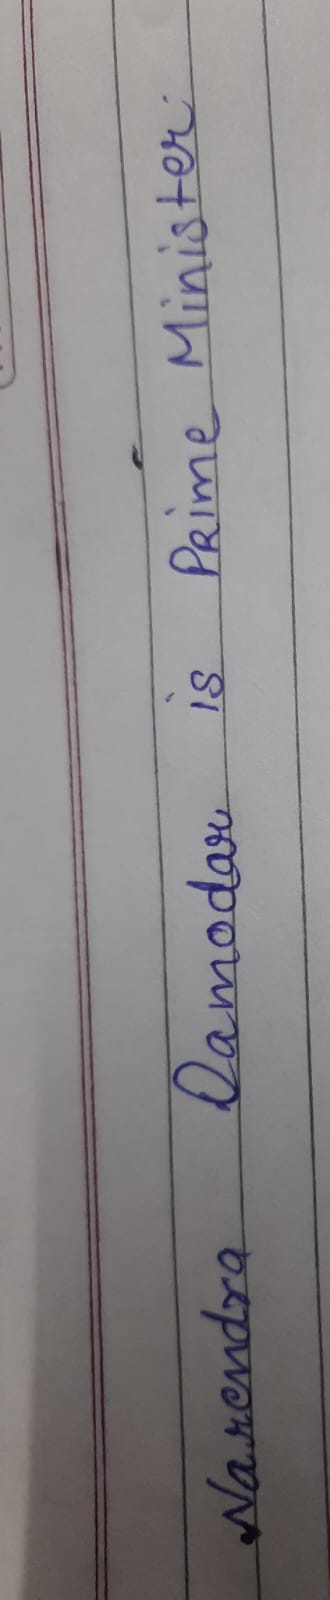 Narendra Damodar is Prime Minister.